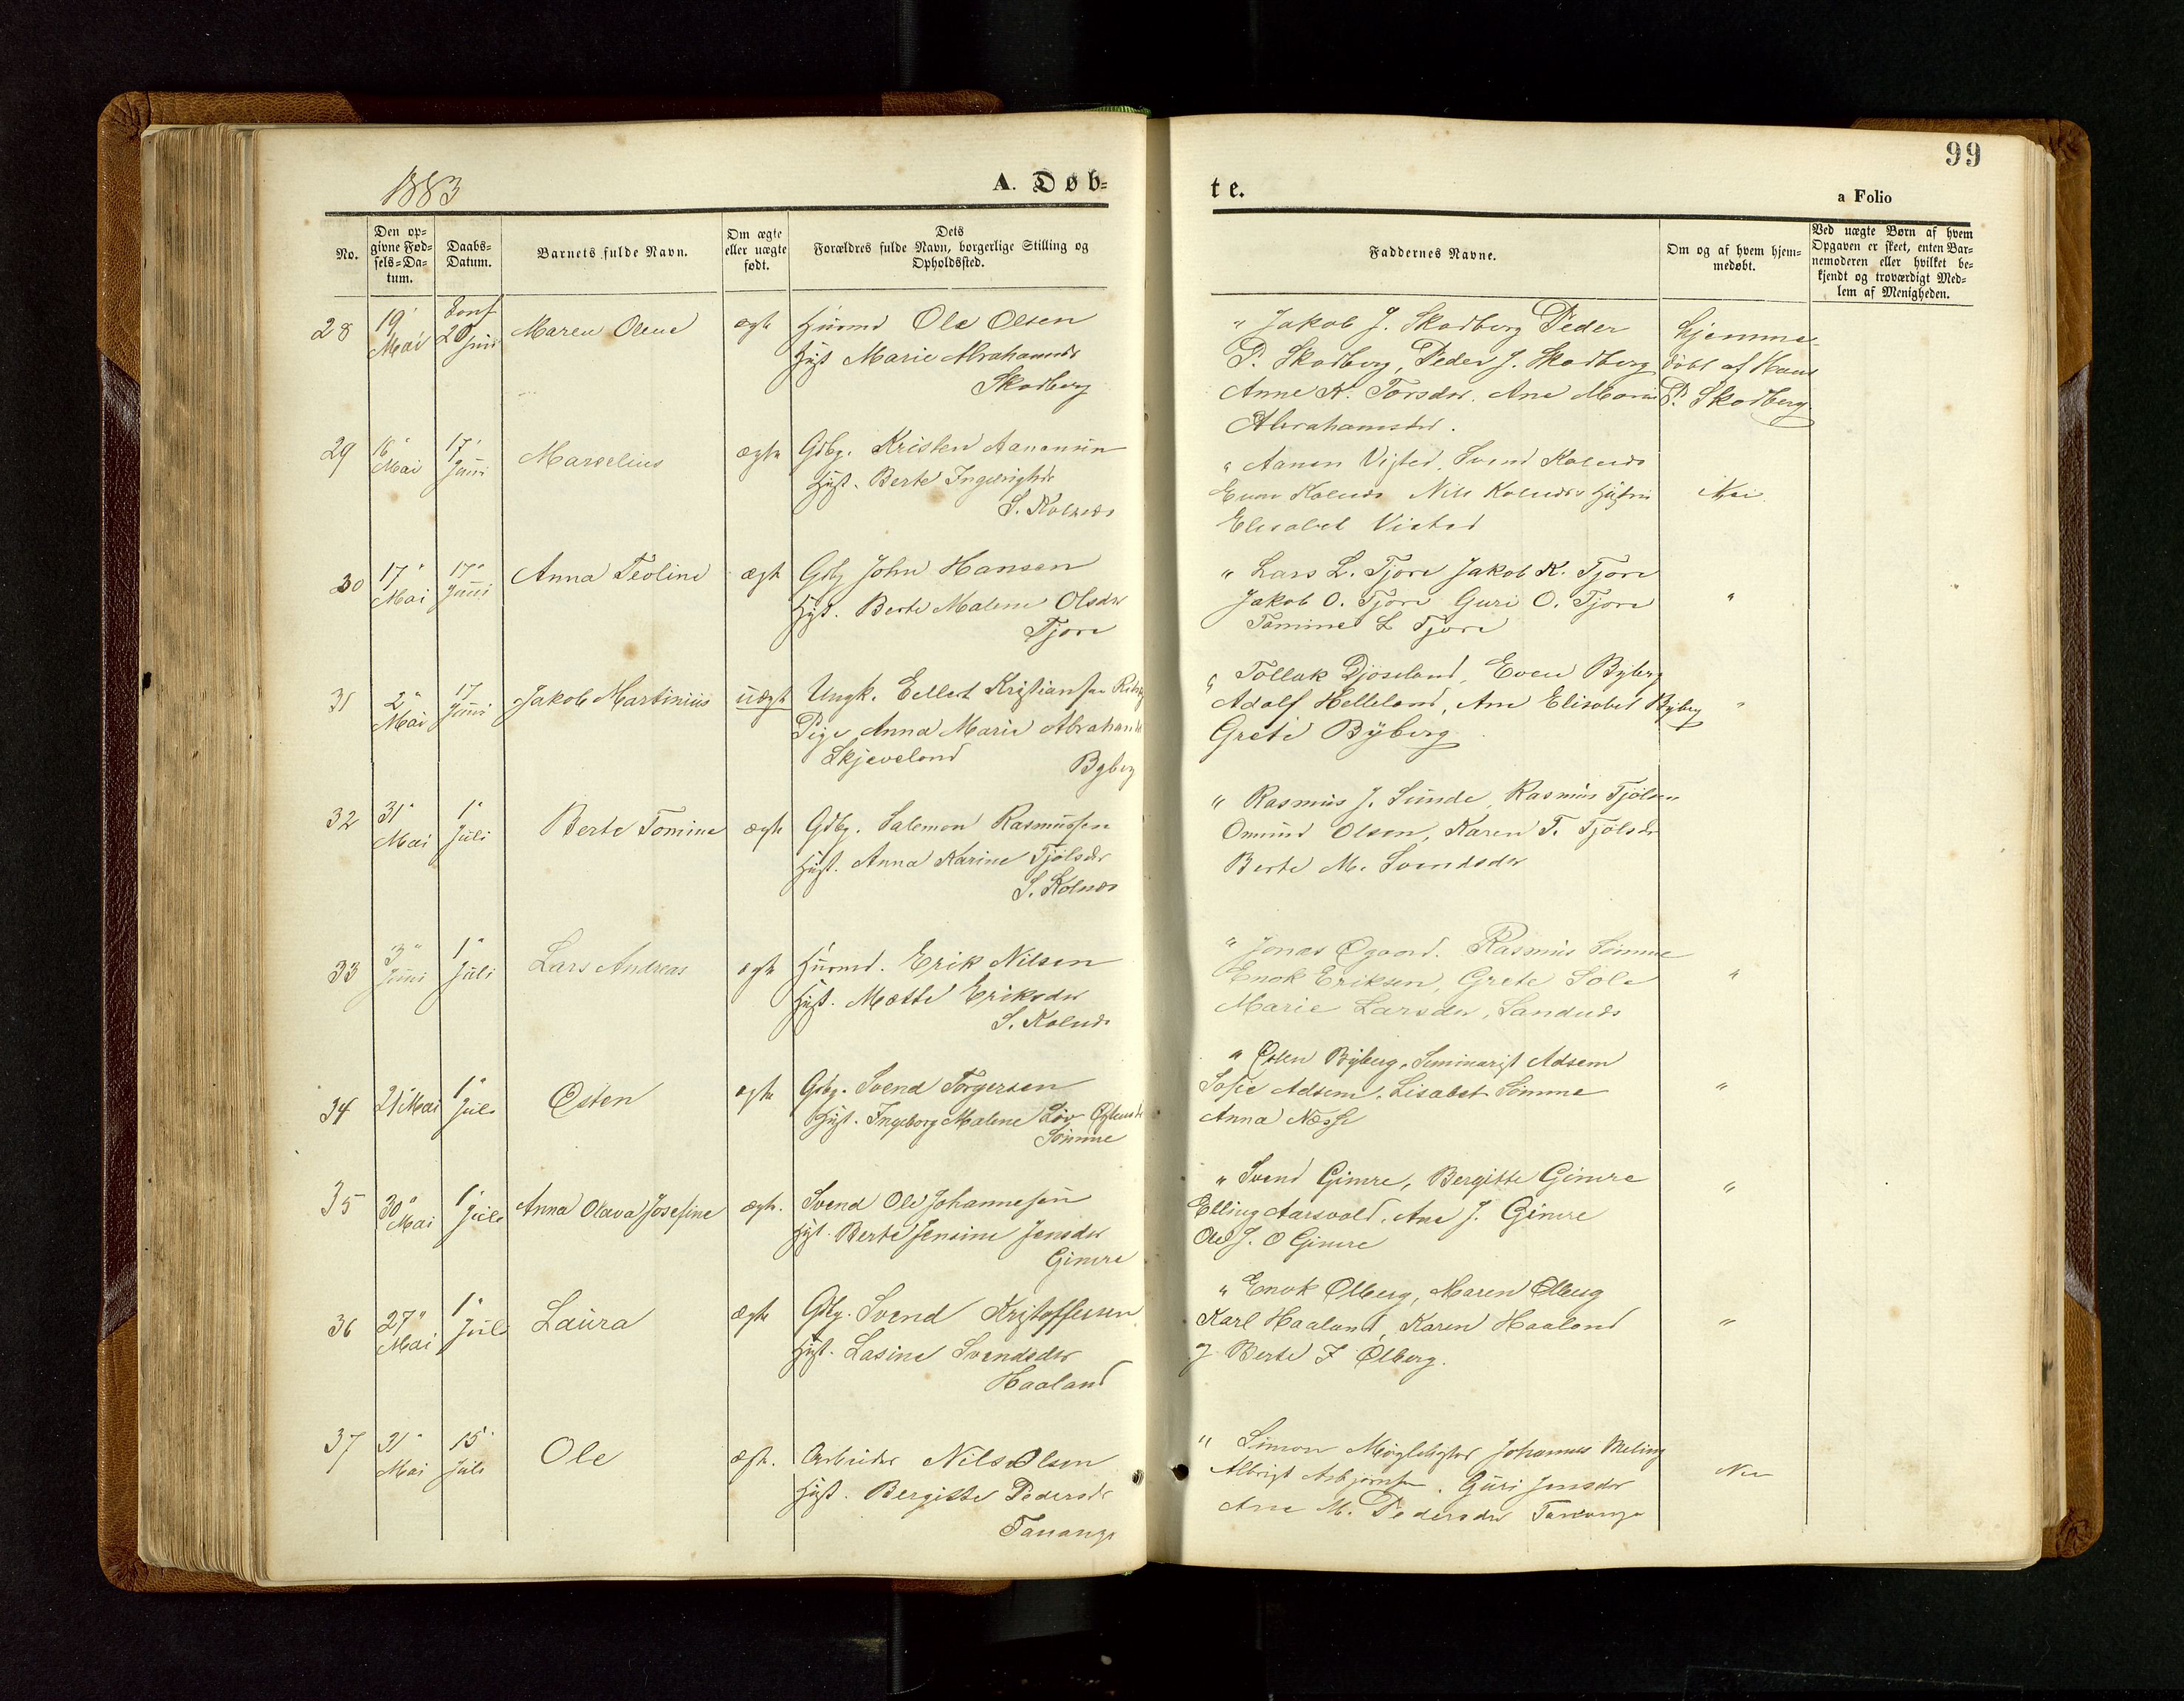 99
1883
A. Døb-
te.
a Folio
No.
Den op-
givne Fød-
sels-Da-
tum.
Daabs-
Datum.
Barnets fulde Navn.
Om ægte
eller uægte
født.
Dets
Forældres fulde Navn, borgerlige Stilling og
Opholdssted.
Faddernes Navne.
Om og af hvem hjem-
medøbt.
Ved uægte Børn af hvem
Opgaven er skeet, enten Bar-
nemoderen eller hvilket be-
kjendt og troværdigt Med-
lem af Menigheden.
28
19
Mai
Conf
20 Juni
Maren Olene
ægte
Husmd Ole Olsen
Hust Marie Abrahamsdr
Skadberg
" Jakob J. Skadberg Peder
P. Skadberg, Peder J. Skadberg
Anne K. Torsdr. Ane Marie
Abrahamsdr.
Hjemme-
døbt af Hans
P. Skadberg
29
16"
Mai
17"
Juni
Marselius
ægte
Gdbg. Kristen Aanensen
Hust. Berte Ingebrigtsdr
S. Kolnes
" Aanen Vigted, Svend Kolnes
Even Kolnes Nils Kolnes Hustru
Elisabet Visted
Nei
30
17"
Mai
17"
Juni
Anna Teoline
ægte
Gdbg John Hansen
Hust. Berte Malene Olsdr
Tjore
" Lars L. Tjore Jakob K. Tjore
Jakob O. Tjore Guri O. Tjore
Tomine L Tjore
"
31
2"
Mai
17
Juni
Jakob Martinius
uægte
Ungk. Eellert Kristiansen
Pige Anna Marie Abrahamsdr
Skjeveland
Byberg
" Tollak Djoseland, Even Byberg
Adolf Helleland, Ane Elisabet Byberg
Grete Byberg
"
32
31"
Mai
1"
Juli
Berte Tomine
ægte
Gdbg. Salemon Rasmussen
Hust. Anna Karine Tjølsdr
S. Kolnes
" Rasmus J. Sunde, Rasmus Tjølsen
Omund Olsen, Karen T. Tjølsdr
Berte M. Svendsdr
33
3"
Juni
1"
Juli
Lars Andreas
ægte
Husmd. Erik Nilsen
Hust. Mætte Eriksdr
S. Kolnes
" Jonas Øgaard. Rasmus Sømme
Enok Eriksen, Grete Sole
Marie Larsdr, Sandnes
"
34
21" Mai
1"
Juli
Østen
ægte
Gdbg. Svend Torgersen
Hust. Ingeborg Malene Østensdr
Sømme
" Østen Byberg, Seminarist Adsem
Sofie Adsem, Lisabet Sømme
Anna Næsse
"
35
30"
Mai
1"
Juli
Anna Olava Josefine
ægte.
Svend Ole Johannesen
Hust. Berte Jensine Jensdr
Gimre
" Svend Gimre, Bergitte Gimre
Elling Aarsvold, Ane J. Gimre
Ole J. O Gimre
"
36
27"
Mai
1"
Juli
Laura
ægte
Gdbg. Svend Kristoffersen
Hust. Lasine Svendsdr
Haaland
" Enok Ølberg, Maren Ølberg
Karl Haaland, Karen Haaland
og Berte I Ølberg.
"
37
31"
Mai
15"
Juli
Ole
ægte.
Arbeider Nils Olsen
Hust. Bergitte Pedersdr
Tananger
" Simon Johannes Meling
Albrigt Asbjørnsen, Guri Jensdr
Ane M. Pedersdr Tananger
Nei